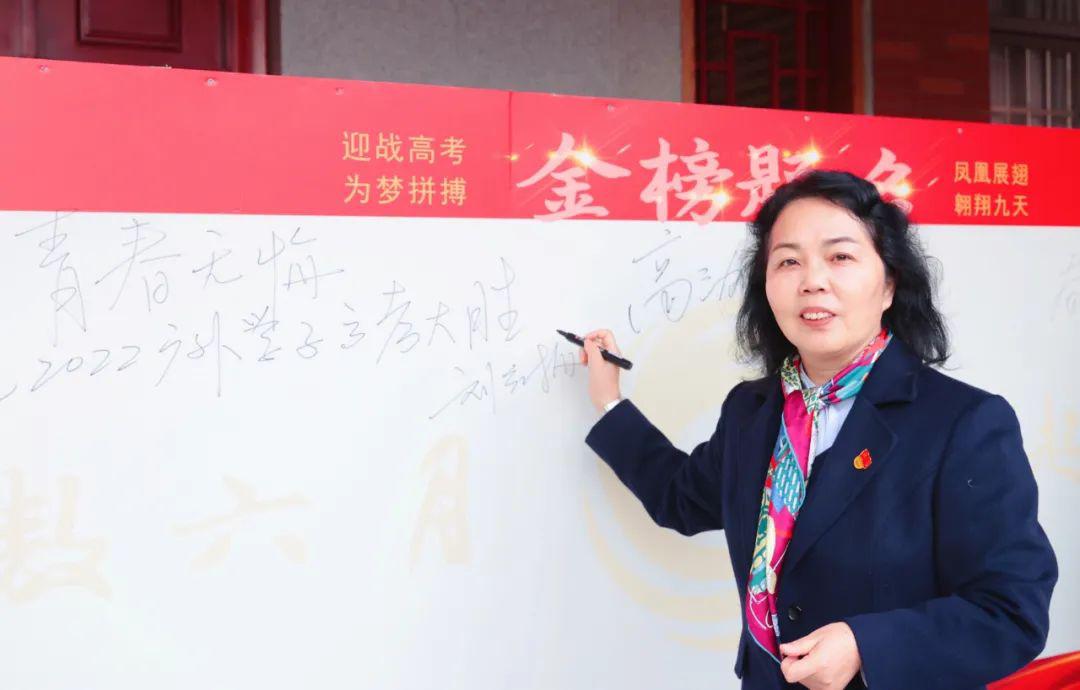 迎战高考
为梦拼搏
金榜题名
凤凰展翅
翱翔九天
青春无悔
2022广外学子高考大胜
高
六月